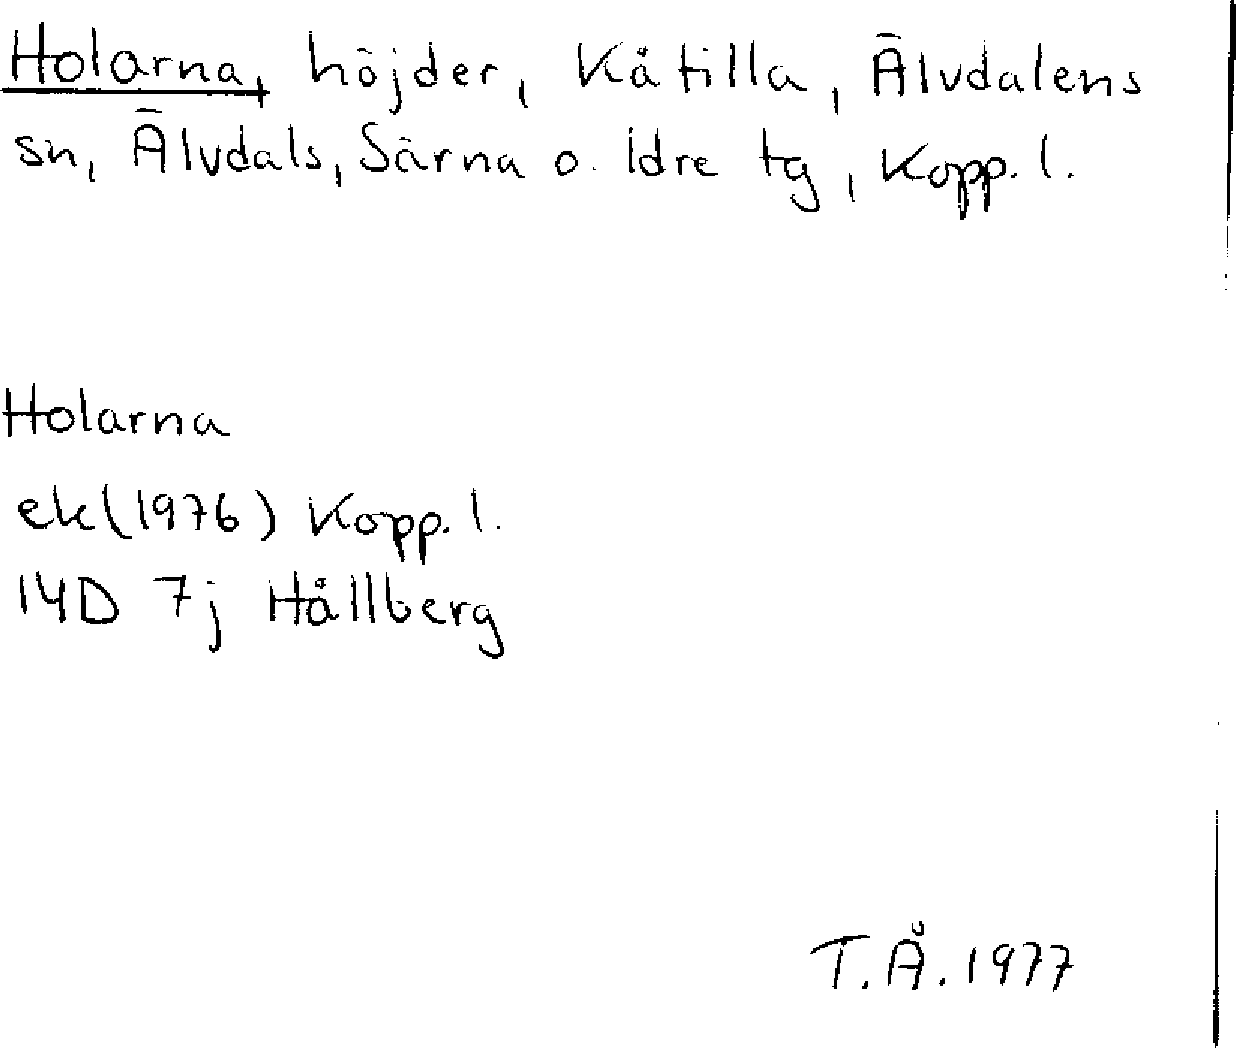 Holarna, höjder, Kåtilla, Älvdalens
sn, Älvdals, Särna o. Idre tg, Kopp. l.
Holarna
ek (1976) Kopp. l.
14D 7j Hållberg
T.Å. 1977